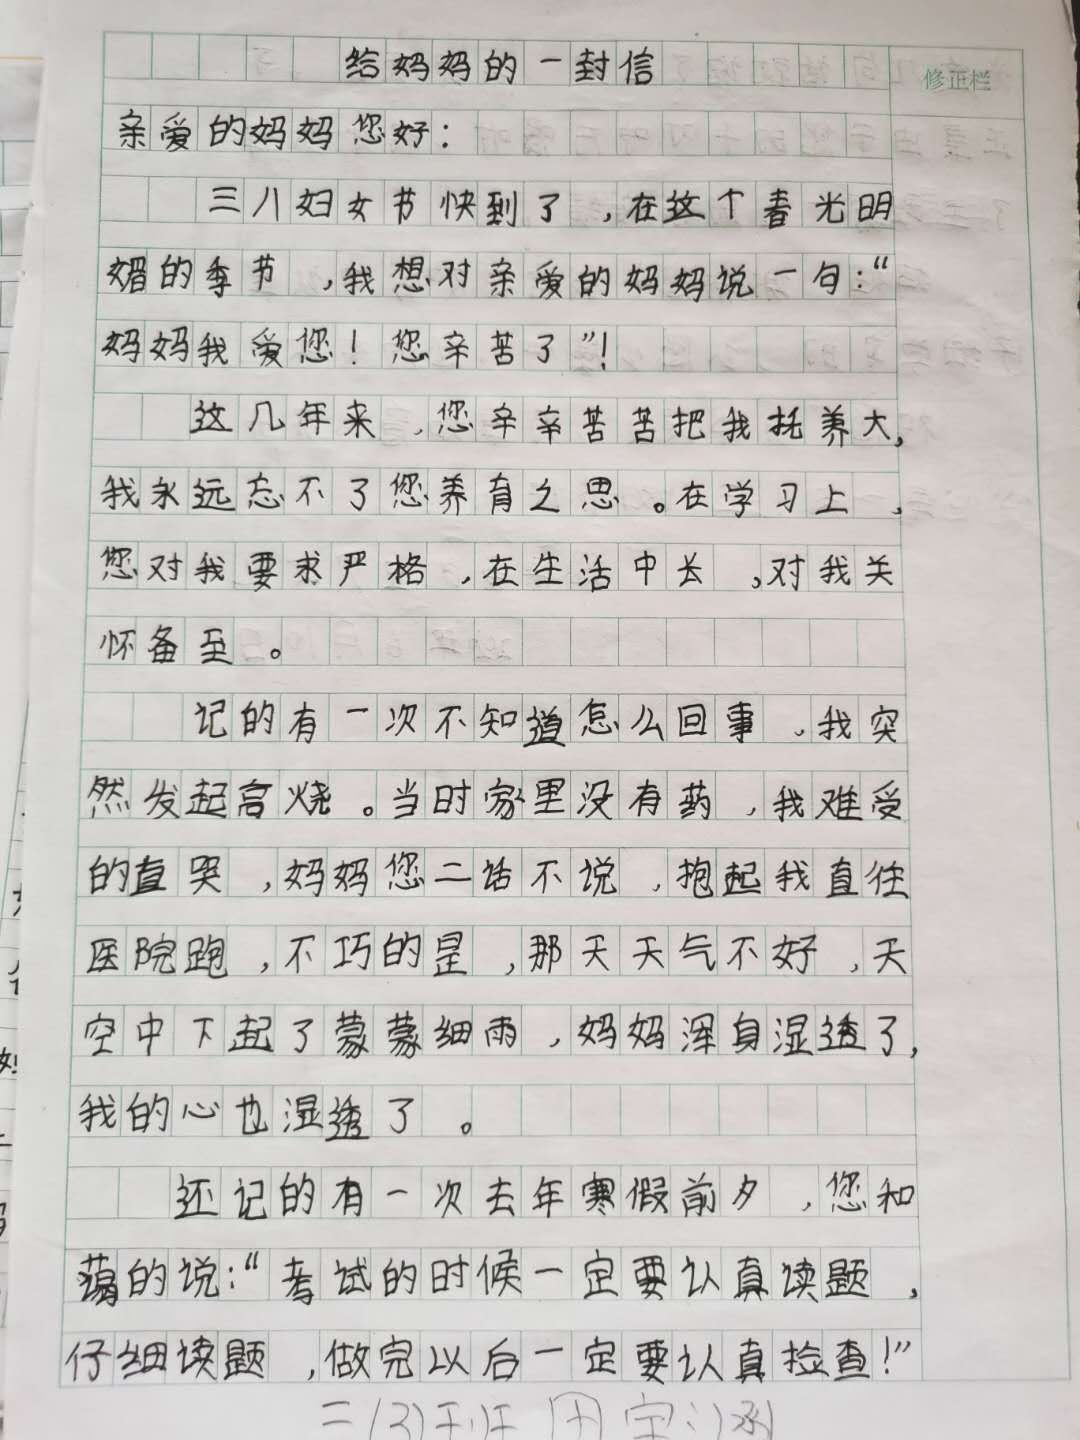 给妈妈的一封信
修正栏
亲爱的妈妈您好：
三八妇女节快到了，在这个春光明
媚的季节，我想对亲爱的妈妈说一句：“
妈妈我爱您！您辛苦了”！
这几年来，您辛辛苦苦把我抚养大，
我永远忘不了您养育之恩。在学习上，
您对我要求严格，在生活中长，对我关
怀备至。
记的有一次不知道怎么回事，我突
然发起高烧。当时家里没有药，我难受
的直哭，妈妈您二话不说，抱起我直往
医院跑，不巧的是，那天天气不好，天
空中下起了蒙蒙细雨，妈妈浑身湿透了，
我的心也湿透了。
还记的有一次去年寒假前夕，您和
蔼的说：“考试的时候一定要认真读题，
仔细读题，做完以后一定要认真捡查！”
二(3)班 田宇涵